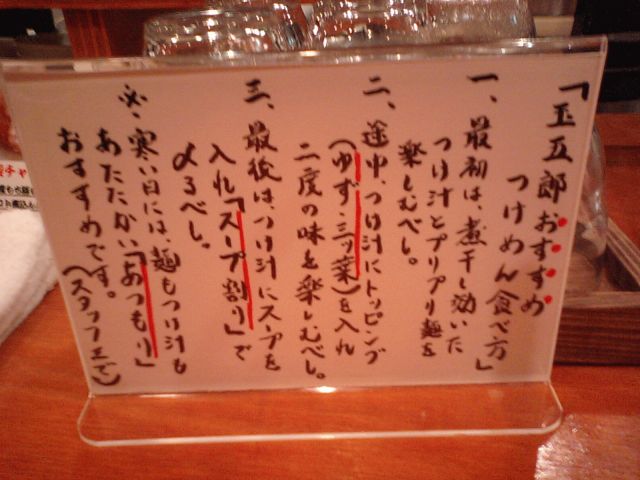 「玉五郎おすすめ
つけめん食べ方」
一、最初は、煮干し効いた
つけ汁とプリプリ麺を
楽しむべし。
二、途中、つけ汁にトッピング
(ゆず・三ッ葉)を入れ
二度の味を楽しむべし。
三、最後は、つけ汁にスープを
入れ「スープ割り」で
〆るべし。
※・寒い日には、麺もつけ汁も
あたたかい「あつもり」
おすすめです。
(スタッフまで)